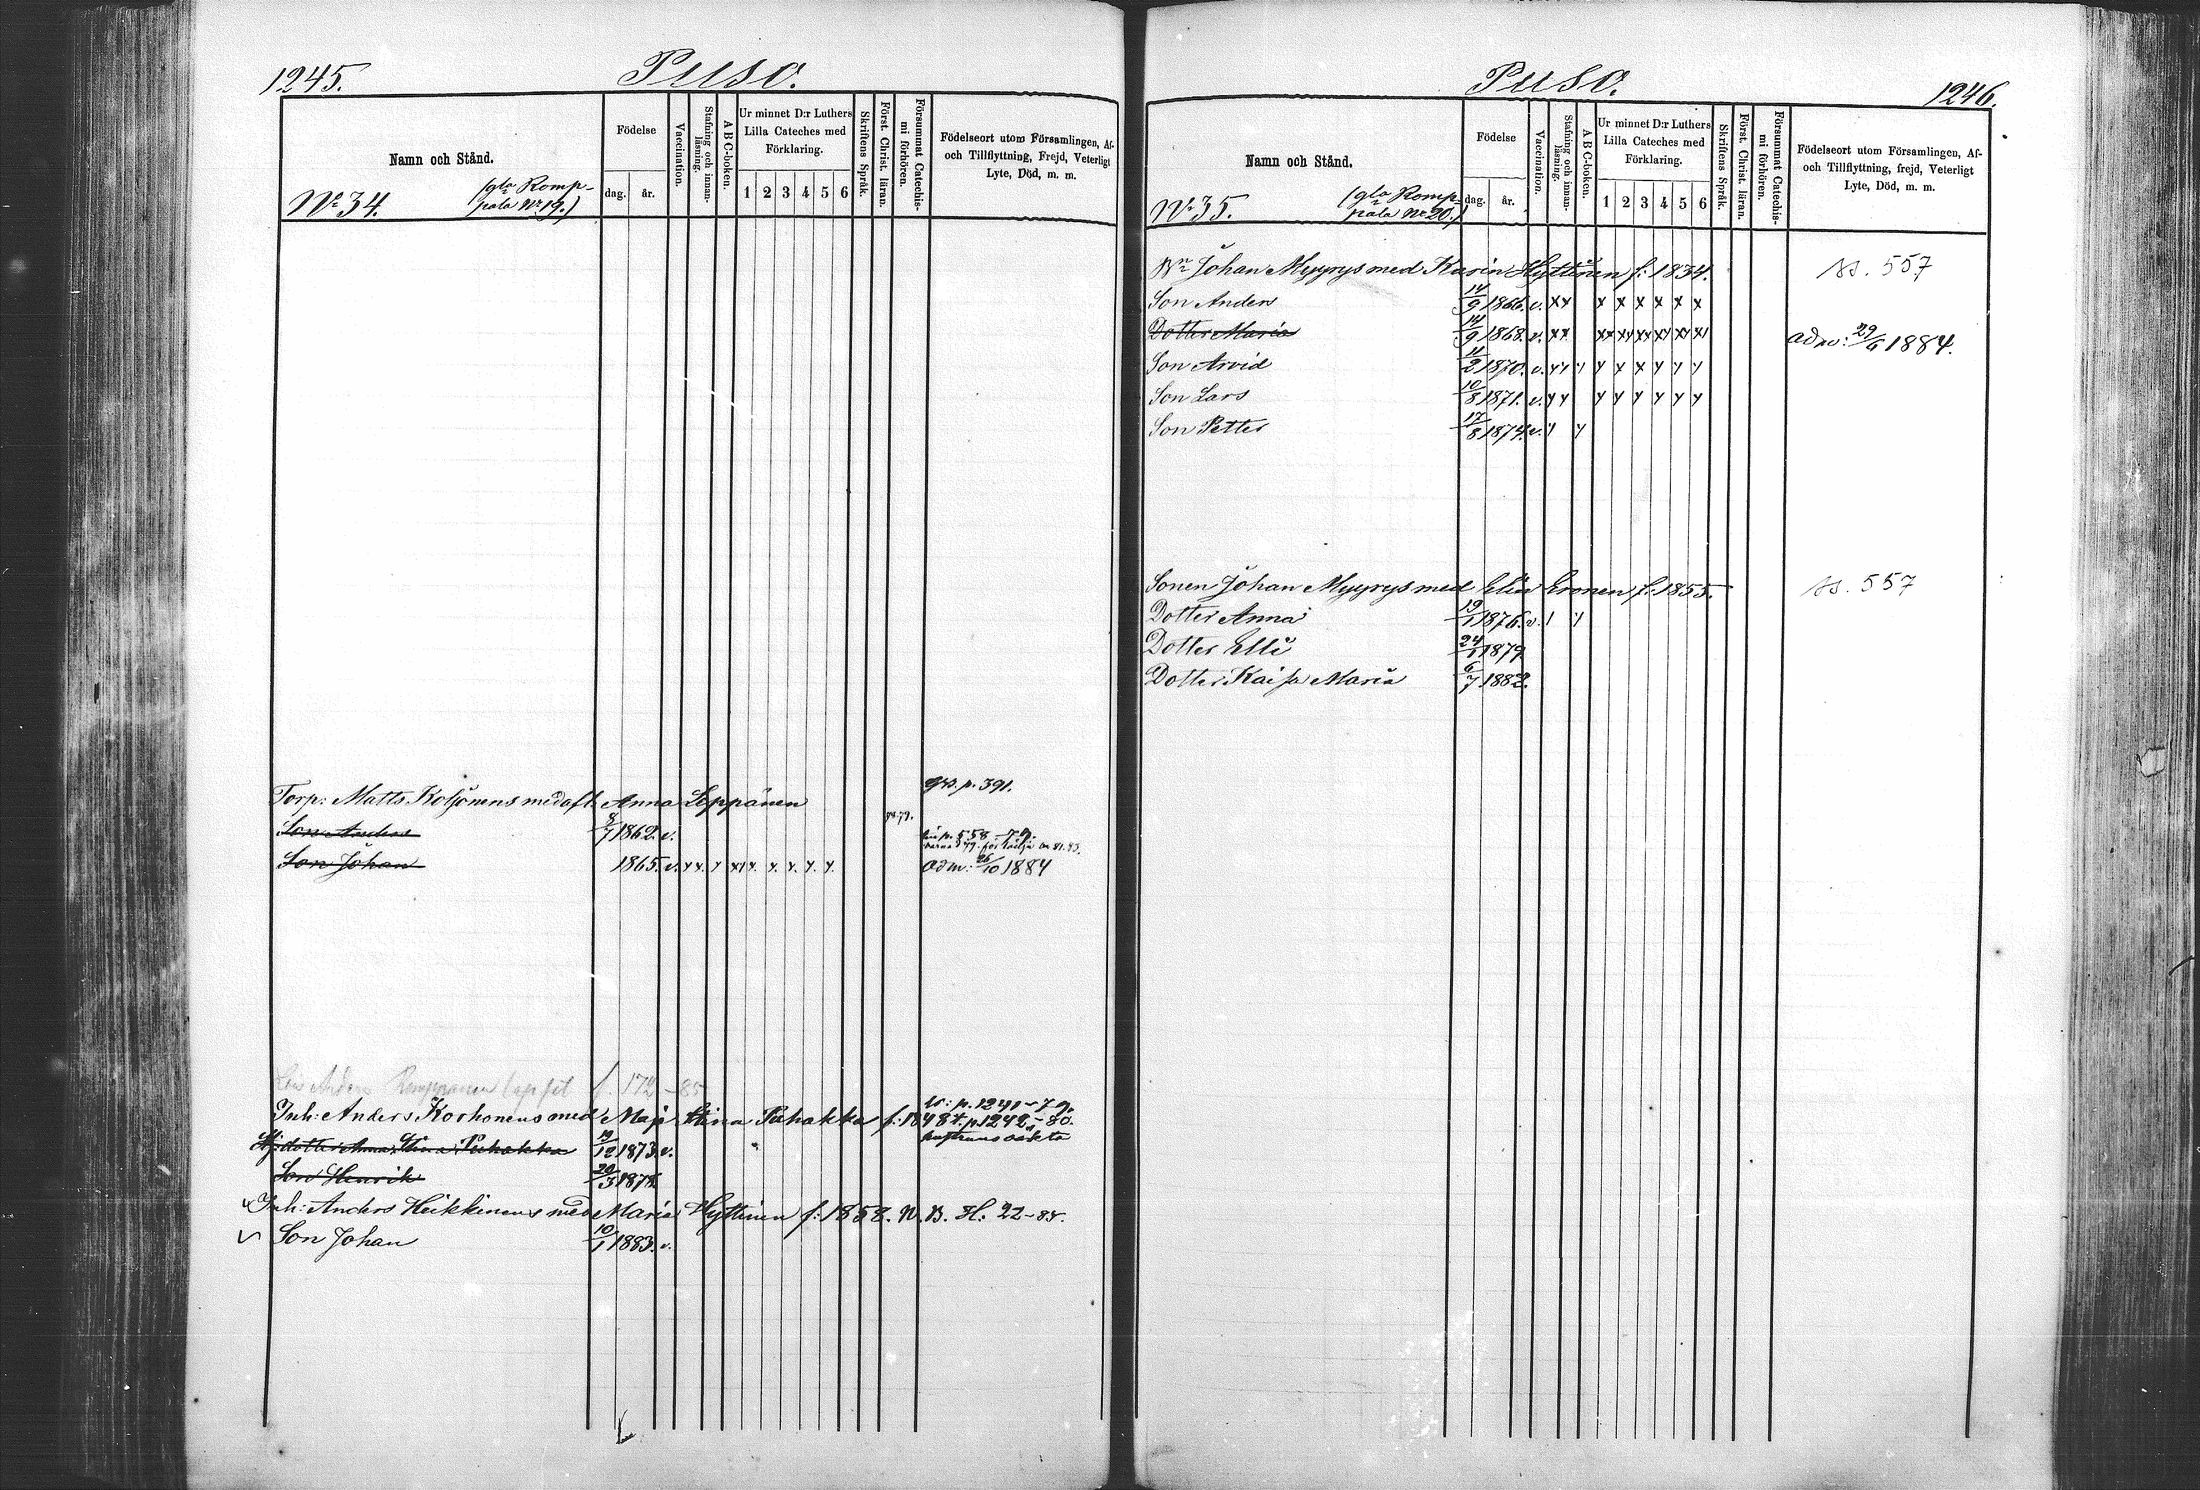 1245.
Puso.
Namn och Stånd.
Födelse
dag.
år.
Vaccination.
Stafning och innan-
läsning.
A B C-boken.
Ur minnet D:r Luthers
Lilla Cateches med
Förklaring.
1 2 3 4 5 6
Skriftens Språk.
Först. Christ. läran.
Försummat Catechis-
mi förhören.
Födelseort utom Församlingen, Af-
och Tillflyttning, Frejd, Veterligt
Lyte, Död, m. m.
No 34.
(gla Romp-
pala No 19.)
Torp: Matts Koljonens med afl. Anna Leppänen
grs. p. 391.
Son Anders 8/7 1862. v. 79. p. 558 - 79.
Son Johan 1865. v. adm: 26/10 1884
Anders Romppanen p. 172 - 85
Inh: Anders Korhonens med Maj. Stina Puhakka f: 1848 p. 1241 - 79. p. 1242 - 80.
dotter Anna Stina Puhakka 19/12 1873. v.
Son Henrik 20/3 1878.
Inh: Anders Heikkinens med Maria Hyttinen f: 1858. N. B. Sl. 22 - 85.
Son Johan 10/1 1883. v.
Puso.
1246.
Namn och Stånd.
Födelse
dag.
år.
Vaccination.
Stafning och innan-
läsning.
A B C-boken.
Ur minnet D:r Luthers
Lilla Cateches med
Förklaring.
1 2 3 4 5 6
Skriftens Språk.
Först. Christ. läran.
Försummat Catechis-
mi förhören.
Födelseort utom Församlingen, Af-
och Tillflyttning, frejd, Veterligt
Lyte, Död, m. m.
No 35.
(gla Romp-
pala No 20.)
Bn Johan Myyrys med Karin Hyttinen f: 1834. ss. 557
Son Anders 14/9 1866. v. x x x x x x x x
Dotter Maria 14/9 1868. v. x x adm: 29/6 1884.
Son Arvid 11/2 1870. v.
Son Lars 10/8 1871. v.
Son Petter 17/8 1874. v.
Sonen Johan Myyrys med Elin Eronen f: 1855. ss. 557
Dotter Anna 19/1 1876. v.
Dotter Elli 24/1 1879
Dotter Kaisa Maria 6/7 1882.